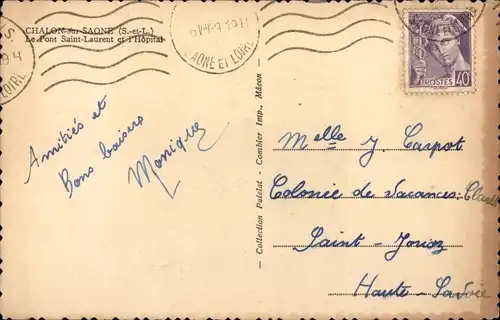 CHALON-sur-SAONE (S.-et-L.)
Le Pont Saint-Laurent et l'Hôpital
SAONE ET LOIRE
POSTES 40
Amitiés et
Bons baisers
Monique
Collection Patelat - Combier Imp., Mâcon
Melle J. Carpot
Colonie de Vacances
Saint-Jorioz
Haute-Savoie